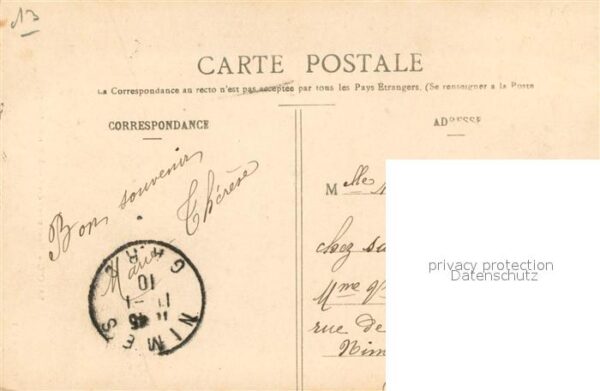 13
CARTE POSTALE
La Correspondance au recto n'est pas acceptée par tous les Pays Etrangers. (Se renseigner a la Poste
CORRESPONDANCE
ADRESSE
Bon souvenir
Marie Thérèse
NIMES GARE
11 45
11 -1
10
Melle
chez sa
Mme
rue de
Nim
privacy protection
Datenschutz